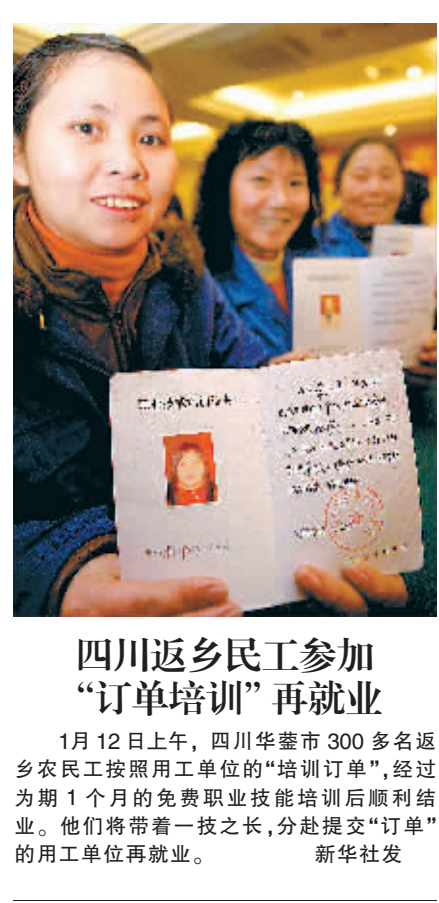 四川返乡民工参加
“订单培训”再就业
1月12日上午，四川华蓥市300多名返
乡农民工按照用工单位的“培训订单”,经过
为期1个月的免费职业技能培训后顺利结
业。他们将带着一技之长,分赴提交“订单”
的用工单位再就业。 新华社发